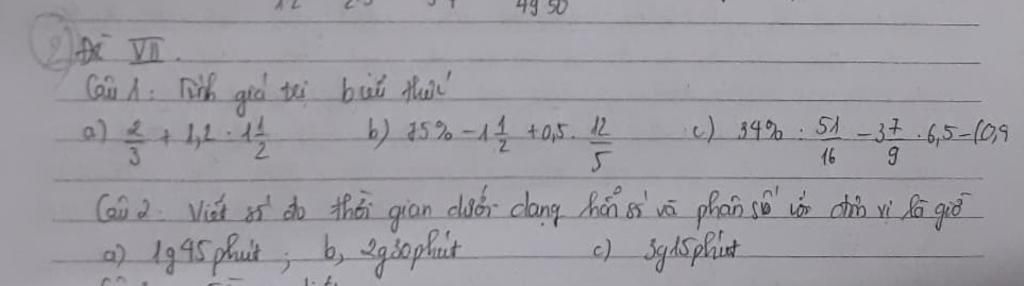 12 25 34 4950
② Đề VII.
Câu 1: Tính giá trị biểu thức
a) 2/3 + 1,2 . 1 1/2 b) 75% - 1 1/2 + 0,5 . 12/5 c) 34% : 51/16 - 3 7/9 . 6,5 - (0,9
Câu 2. Viết số đo thời gian dưới dạng hỗn số và phân số với đơn vị là giờ
a) 1g45phút ; b, 2g30phút c) 3g15phút